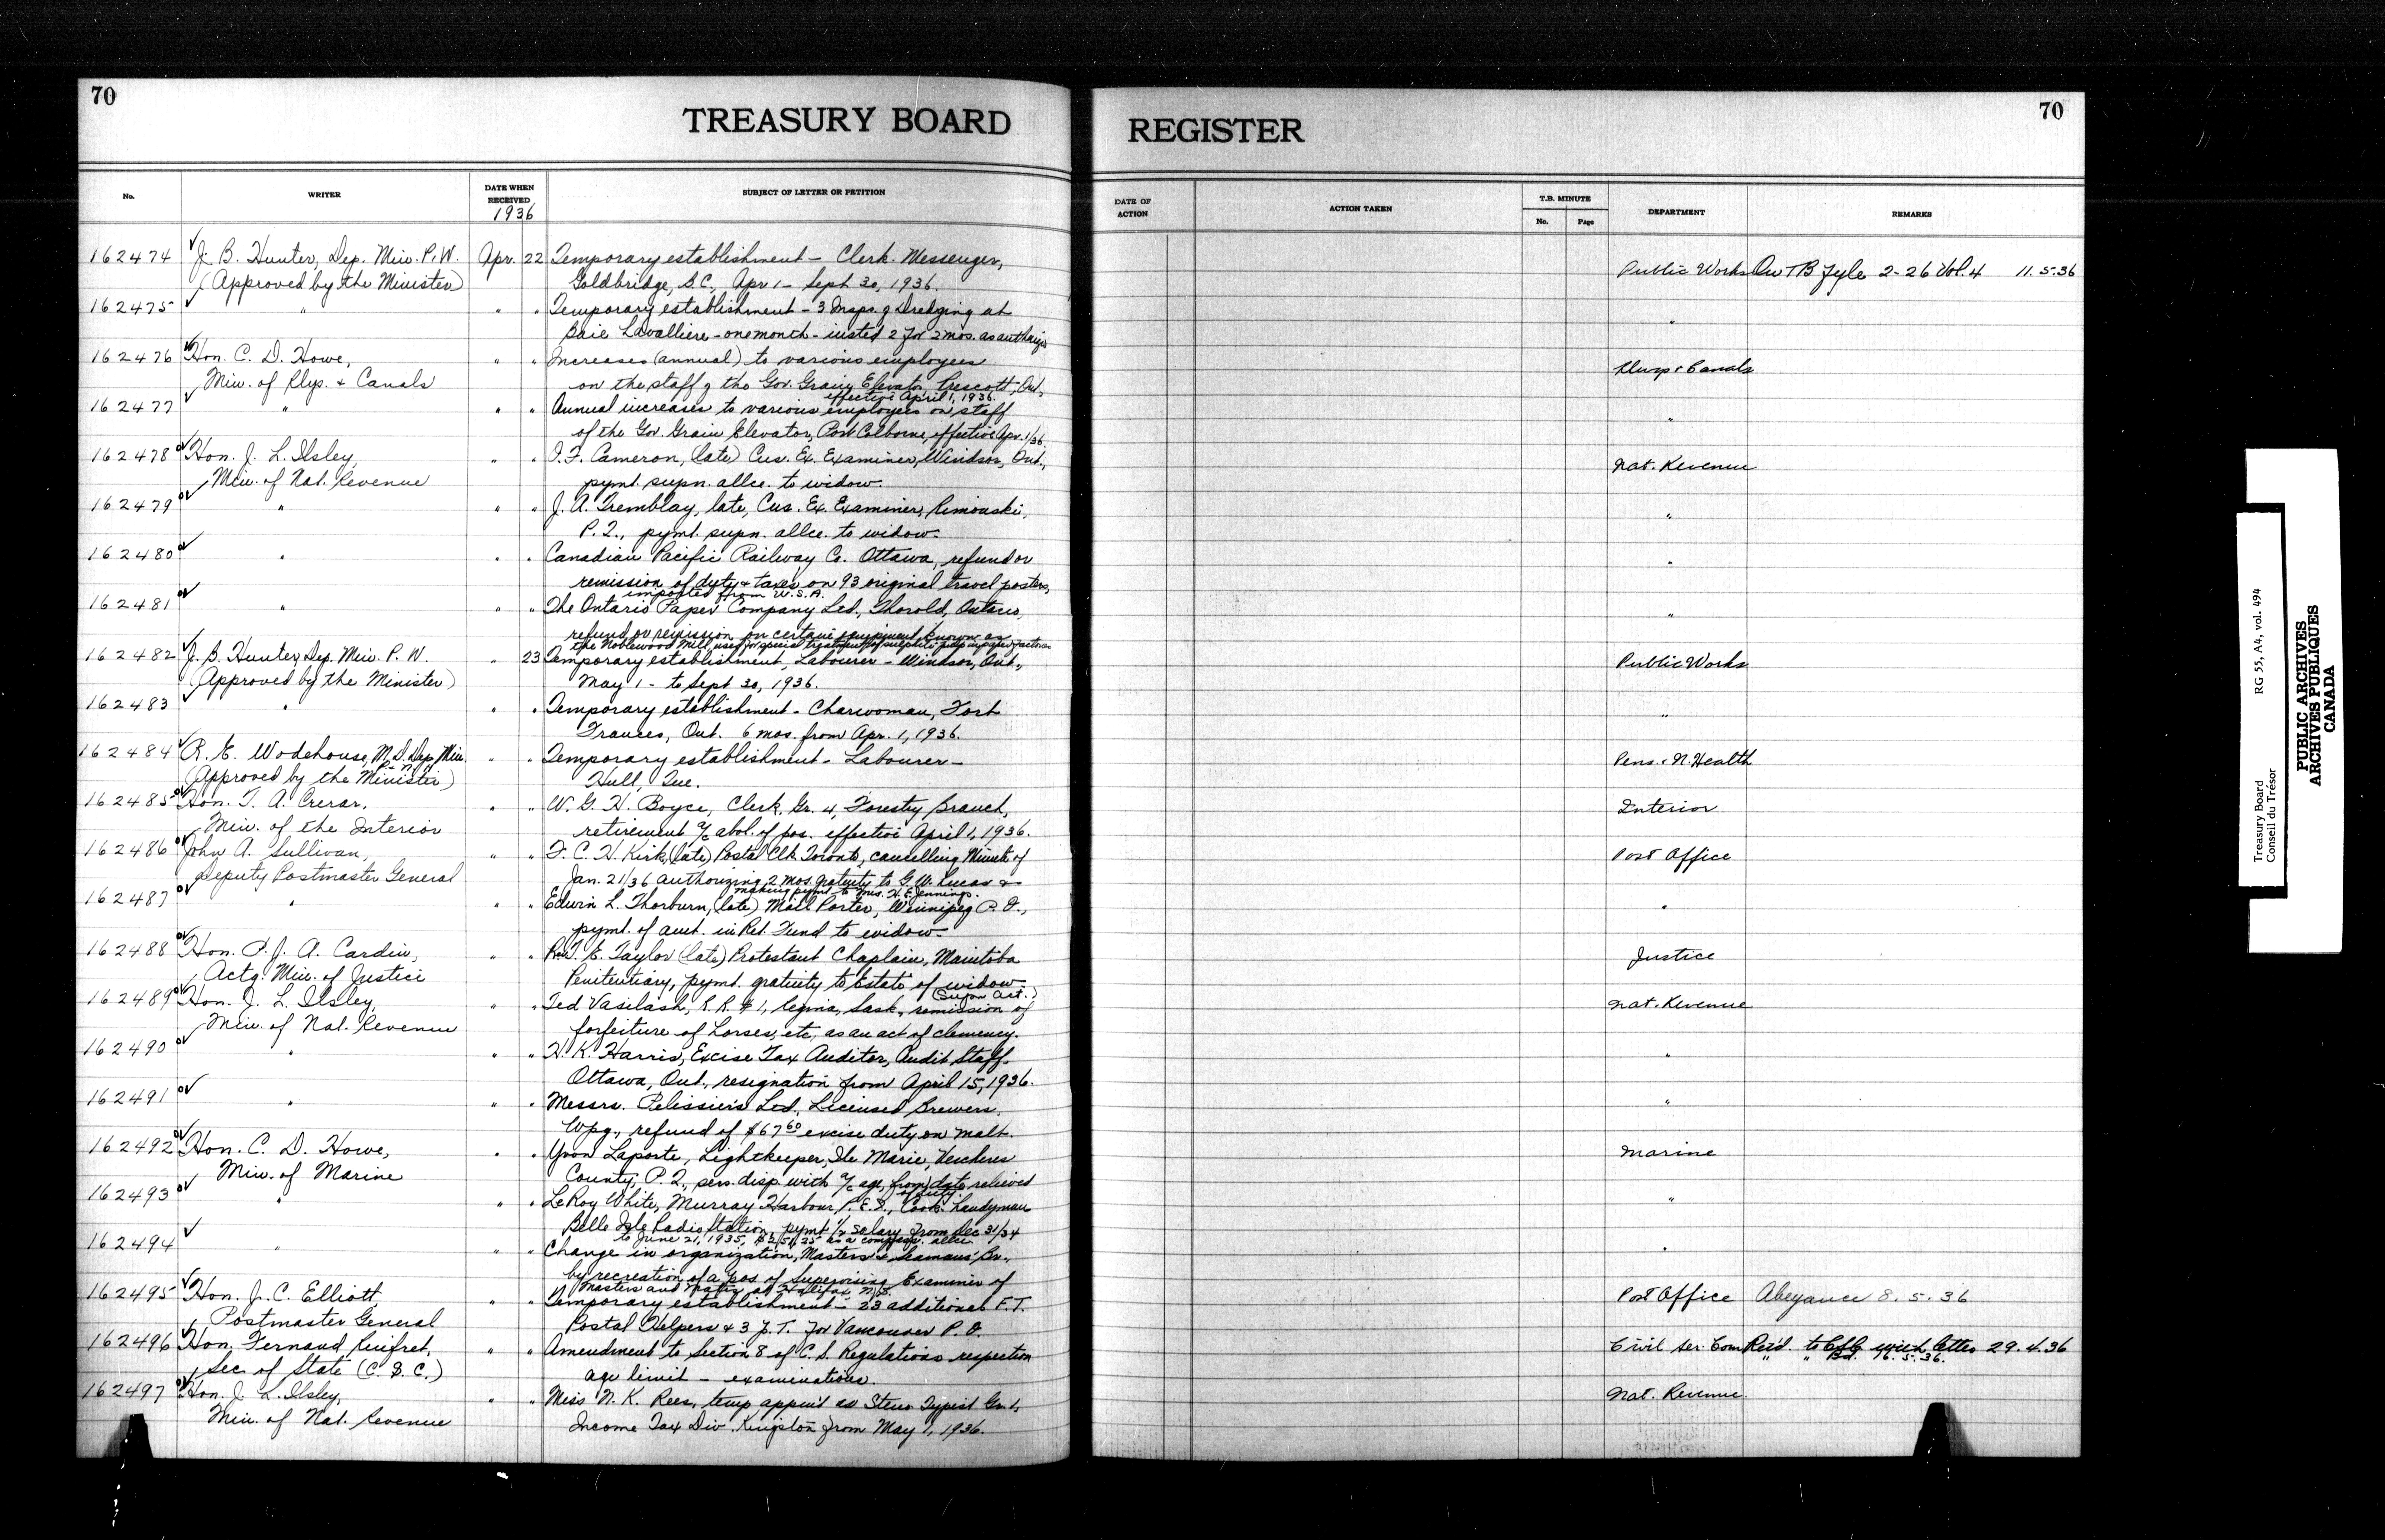 70
TREASURY BOARD REGISTER
70
No.
WRITER
DATE WHEN RECEIVED
1936
SUBJECT OF LETTER OR PETITION
DATE OF ACTION
ACTION TAKEN
T.B. MINUTE
No. Page
DEPARTMENT
REMARKS
162474 J. B. Hunter, Dep. Min. P. W. Apr. 22 Temporary establishment - Clerk. Messenger, Public Works On TB Fyle 2-26 Vol. 4 11.5.36
(Approved by the Minister) Goldbridge, B.C., Apr 1 - Sept 30, 1936.
162475 " " " Temporary establishment - 3 Insps. of Dredging at "
Baie Lavalliere - one month - insted 2 for 2 mos. as
162476 Hon. C. D. Howe, " " Increases (annual) to various employees Rlwys & Canals
Min. of Rlys. & Canals on the staff of the Gov. Grain Elevator, Prescott, Ont.,
effective April 1, 1936.
162477 " " " Annual increases to various employees on staff "
of the Gov. Grain Elevator, Port Colborne, effective Apr. 1/36.
162478 Hon. J. L. Ilsley, " " Cameron, (late) Cus. Ex. Examiner, Windsor, Ont., Nat. Revenue
Min. of Nat. Revenue pymt. supn. allce. to widow.
162479 " " " J. A. Tremblay, late, Cus. Ex. Examiner, Rimouski, "
P. Q., pymt. supn. allce. to widow.
162480 " " " Canadian Pacific Railway Co. Ottawa, refund or "
remission of duty & taxes on 93 original travel posters,
imported from U.S.A.
162481 " " " The Ontario Paper Company Ltd., Thorold, Ontario, "
refund or remission on certain equipment known as
the Noblewood Mill, used for special treatment of sulphite pulp in paper
162482 J. B. Hunter, Dep. Min. P. W. " 23 Temporary establishment, Labourer - Windsor, Ont., Public Works
(Approved by the Minister) May 1 - to Sept 30, 1936.
162483 " " " Temporary establishment - Charwoman, Fort "
Frances, Ont. 6 mos. from Apr. 1, 1936.
162484 R. E. Wodehouse, M.D. Dep. Min. " " Temporary establishment - Labourer - Pens. & N. Health
P & N H
(Approved by the Minister) Hull, Que.
162485 Hon. T. A. Crerar, " " W. G. H. Boyce, Clerk, Gr. 4, Forestry Branch, Interior
Min. of the Interior retirement a/c abol. of pos. effective April 1, 1936.
162486 John A. Sullivan, " " F. C. H. Kirk, (late) Postal Clk. Toronto, cancelling Minute of Post Office
Deputy Postmaster General Jan. 21/36 authorizing 2 mos. gratuity to G. W. Lucas &
making pymt. to Mrs. H. E. Jennings.
162487 " " " Edwin L. Thorburn, (late) Mail Porter, Winnipeg P. O., "
pymt. of amt. in Ret. Fund to widow.
162488 Hon. P. J. A. Cardin, " " Rev. T. E. Taylor (late) Protestant Chaplain, Manitoba Justice
Actg. Min. of Justice Penitentiary, pymt. gratuity to Estate of widow.
(Supn Act.)
162489 Hon. J. L. Ilsley, " " Ted Vasilash, R. R. #1, Regina, Sask., remission of Nat. Revenue
Min. of Nat. Revenue forfeiture of horses, etc, as an act of clemency.
162490 " " " H. K. Harris, Excise Tax Auditor, Audit Staff. "
Ottawa, Ont., resignation from April 15, 1936.
162491 " " " Messrs. Pelissiers Ltd., Licensed Brewers, "
Wpg., refund of $67.60 excise duty on malt.
162492 Hon. C. D. Howe, " " Yvon Laporte, Lightkeeper, Ile Marie, Vercheres Marine
Min. of Marine County, P. Q., sers. disp. with a/c age, from date relieved
of duty
162493 " " " LeRoy White, Murray Harbour, P.E.I., Cook-Handyman "
Belle Isle Radio Station, pymt 1/2 salary from Dec 31/34
to June 21, 1935, as a compass. allce.
162494 " " " Change in organization, Masters & Seamans' Br., "
by recreation of a pos of Supervising Examiner of
Masters and Mates at Halifax, N.S.
162495 Hon. J. C. Elliott " " Temporary establishment - 23 additional F.T. Post Office Abeyance 8. 5. 36
Postmaster General Postal Helpers & 3 P.T. for Vancouver P. O.
162496 Hon. Fernand Rinfret, " " Amendment to Section 8 of C. S. Regulations respection Civil Ser. Com Ret'd. to CSC with letter 29. 4. 36
" " Bd. 16. 5. 36.
Sec of State (C. S. C.) age limit - examinations.
162497 Hon. J. L. Ilsley, " " Miss N. K. Rees, temp. appm't as Steno Typist Gr. 1, Nat. Revenue
Min. of Nat. Revenue Income Tax Div. Kingston from May 1, 1936.
Treasury Board RG 55, A4, vol. 494
Conseil du Trésor
PUBLIC ARCHIVES
ARCHIVES PUBLIQUES
CANADA